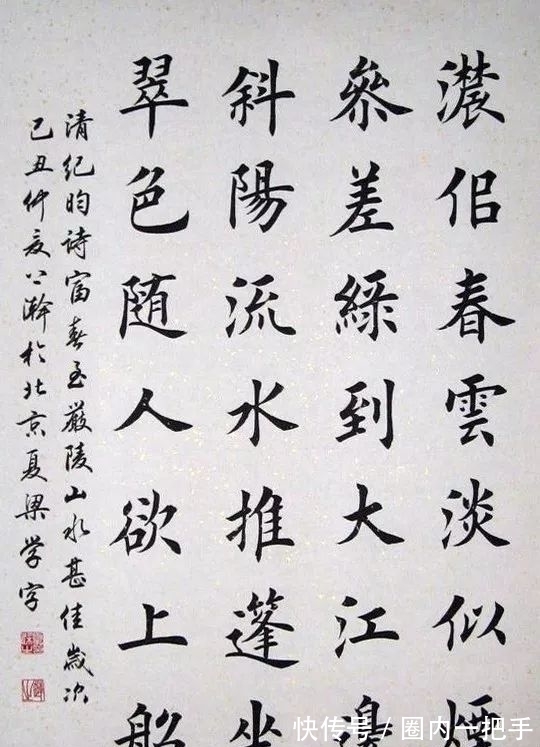 濃侶春雲淡似煙
參差綠到大江邊
斜陽流水推篷坐
翠色随人欲上船
清紀昀詩富春至嚴陵山水甚佳歲次
己丑仲夏公瀚於北京夏梁学字
快传号 / 圈内一把手